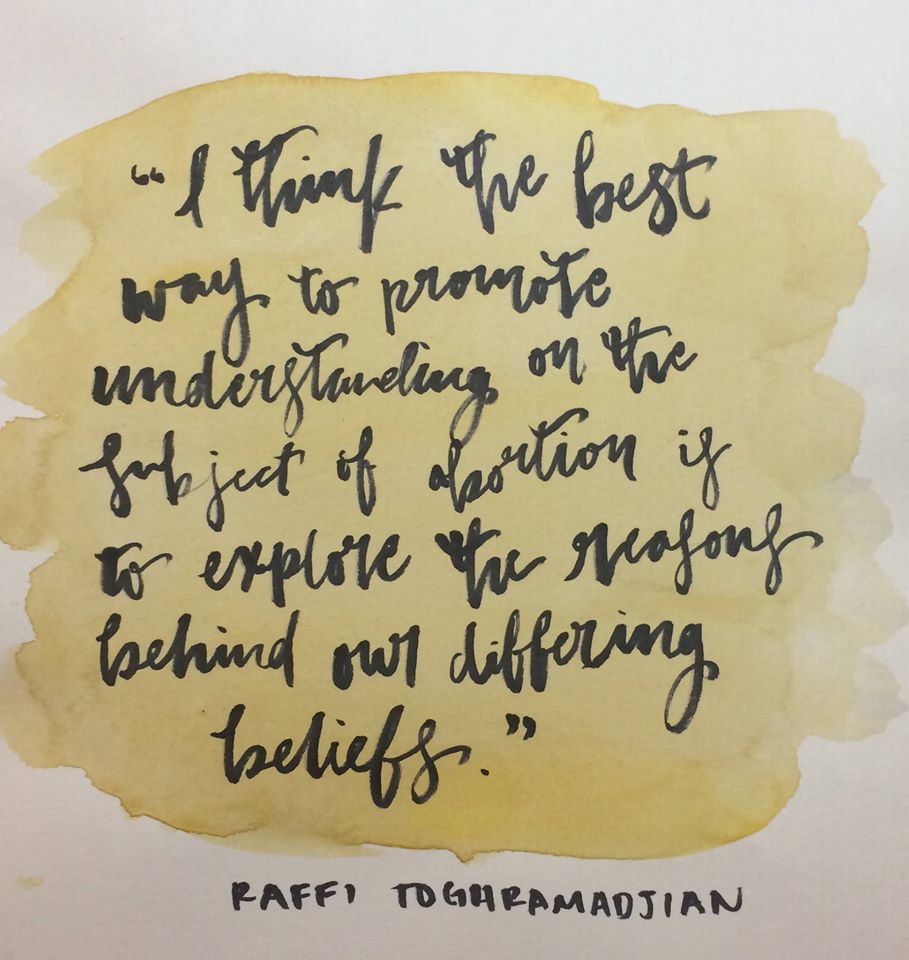 “I think the best
way to promote
understanding on the
subject of abortion is
to explore the reasons
behind our differing
beliefs.”
RAFFI TOGHRAMADJIAN